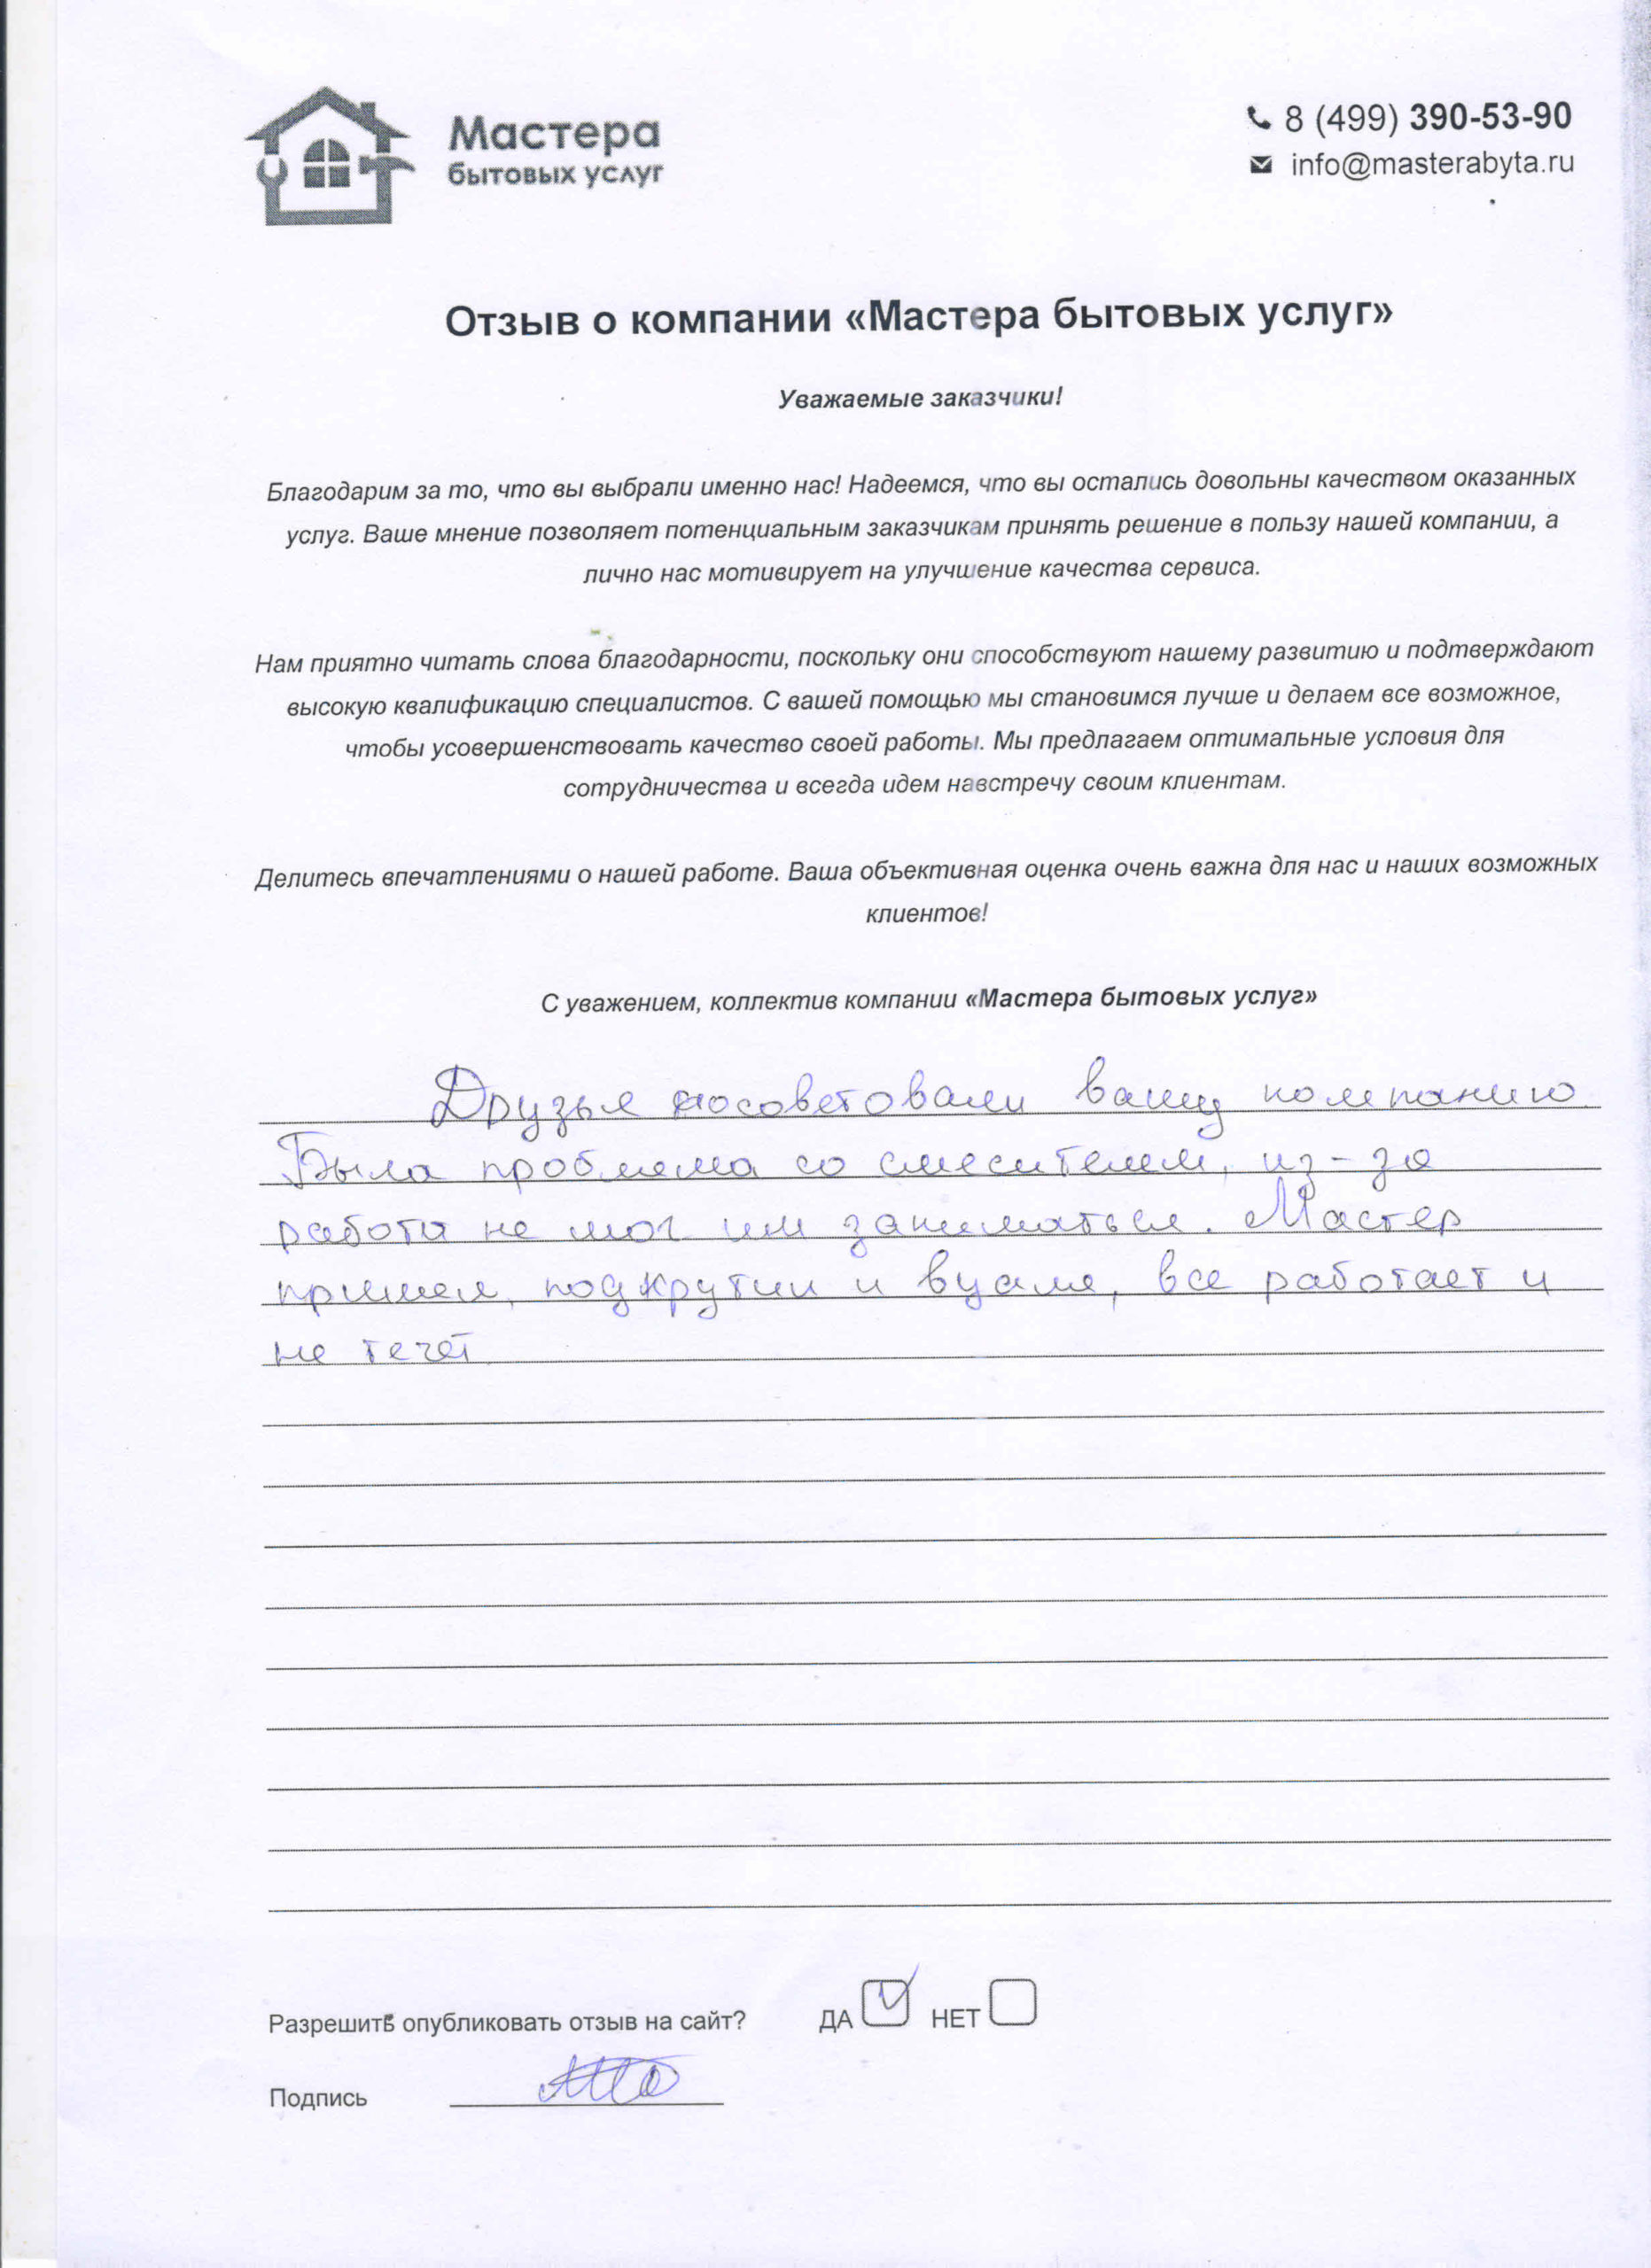 Мастера
бытовых услуг
8 (499) 390-53-90
info@masterabyta.ru
Отзыв о компании «Мастера бытовых услуг»
Уважаемые заказчики!
Благодарим за то, что вы выбрали именно нас! Надеемся, что вы остались довольны качеством оказанных
услуг. Ваше мнение позволяет потенциальным заказчикам принять решение в пользу нашей компании, а
лично нас мотивирует на улучшение качества сервиса.
Нам приятно читать слова благодарности, поскольку они способствуют нашему развитию и подтверждают
высокую квалификацию специалистов. С вашей помощью мы становимся лучше и делаем все возможное,
чтобы усовершенствовать качество своей работы. Мы предлагаем оптимальные условия для
сотрудничества и всегда идем навстречу своим клиентам.
Делитесь впечатлениями о нашей работе. Ваша объективная оценка очень важна для нас и наших возможных
клиентов!
С уважением, коллектив компании «Мастера бытовых услуг»
Друзья посоветовали вашу компанию.
Была проблема со смесителем, из-за
работы не мог им заниматься. Мастер
пришел, подкрутил и вуаля, все работает и
не течет
Разрешить опубликовать отзыв на сайт? ДА НЕТ
Подпись